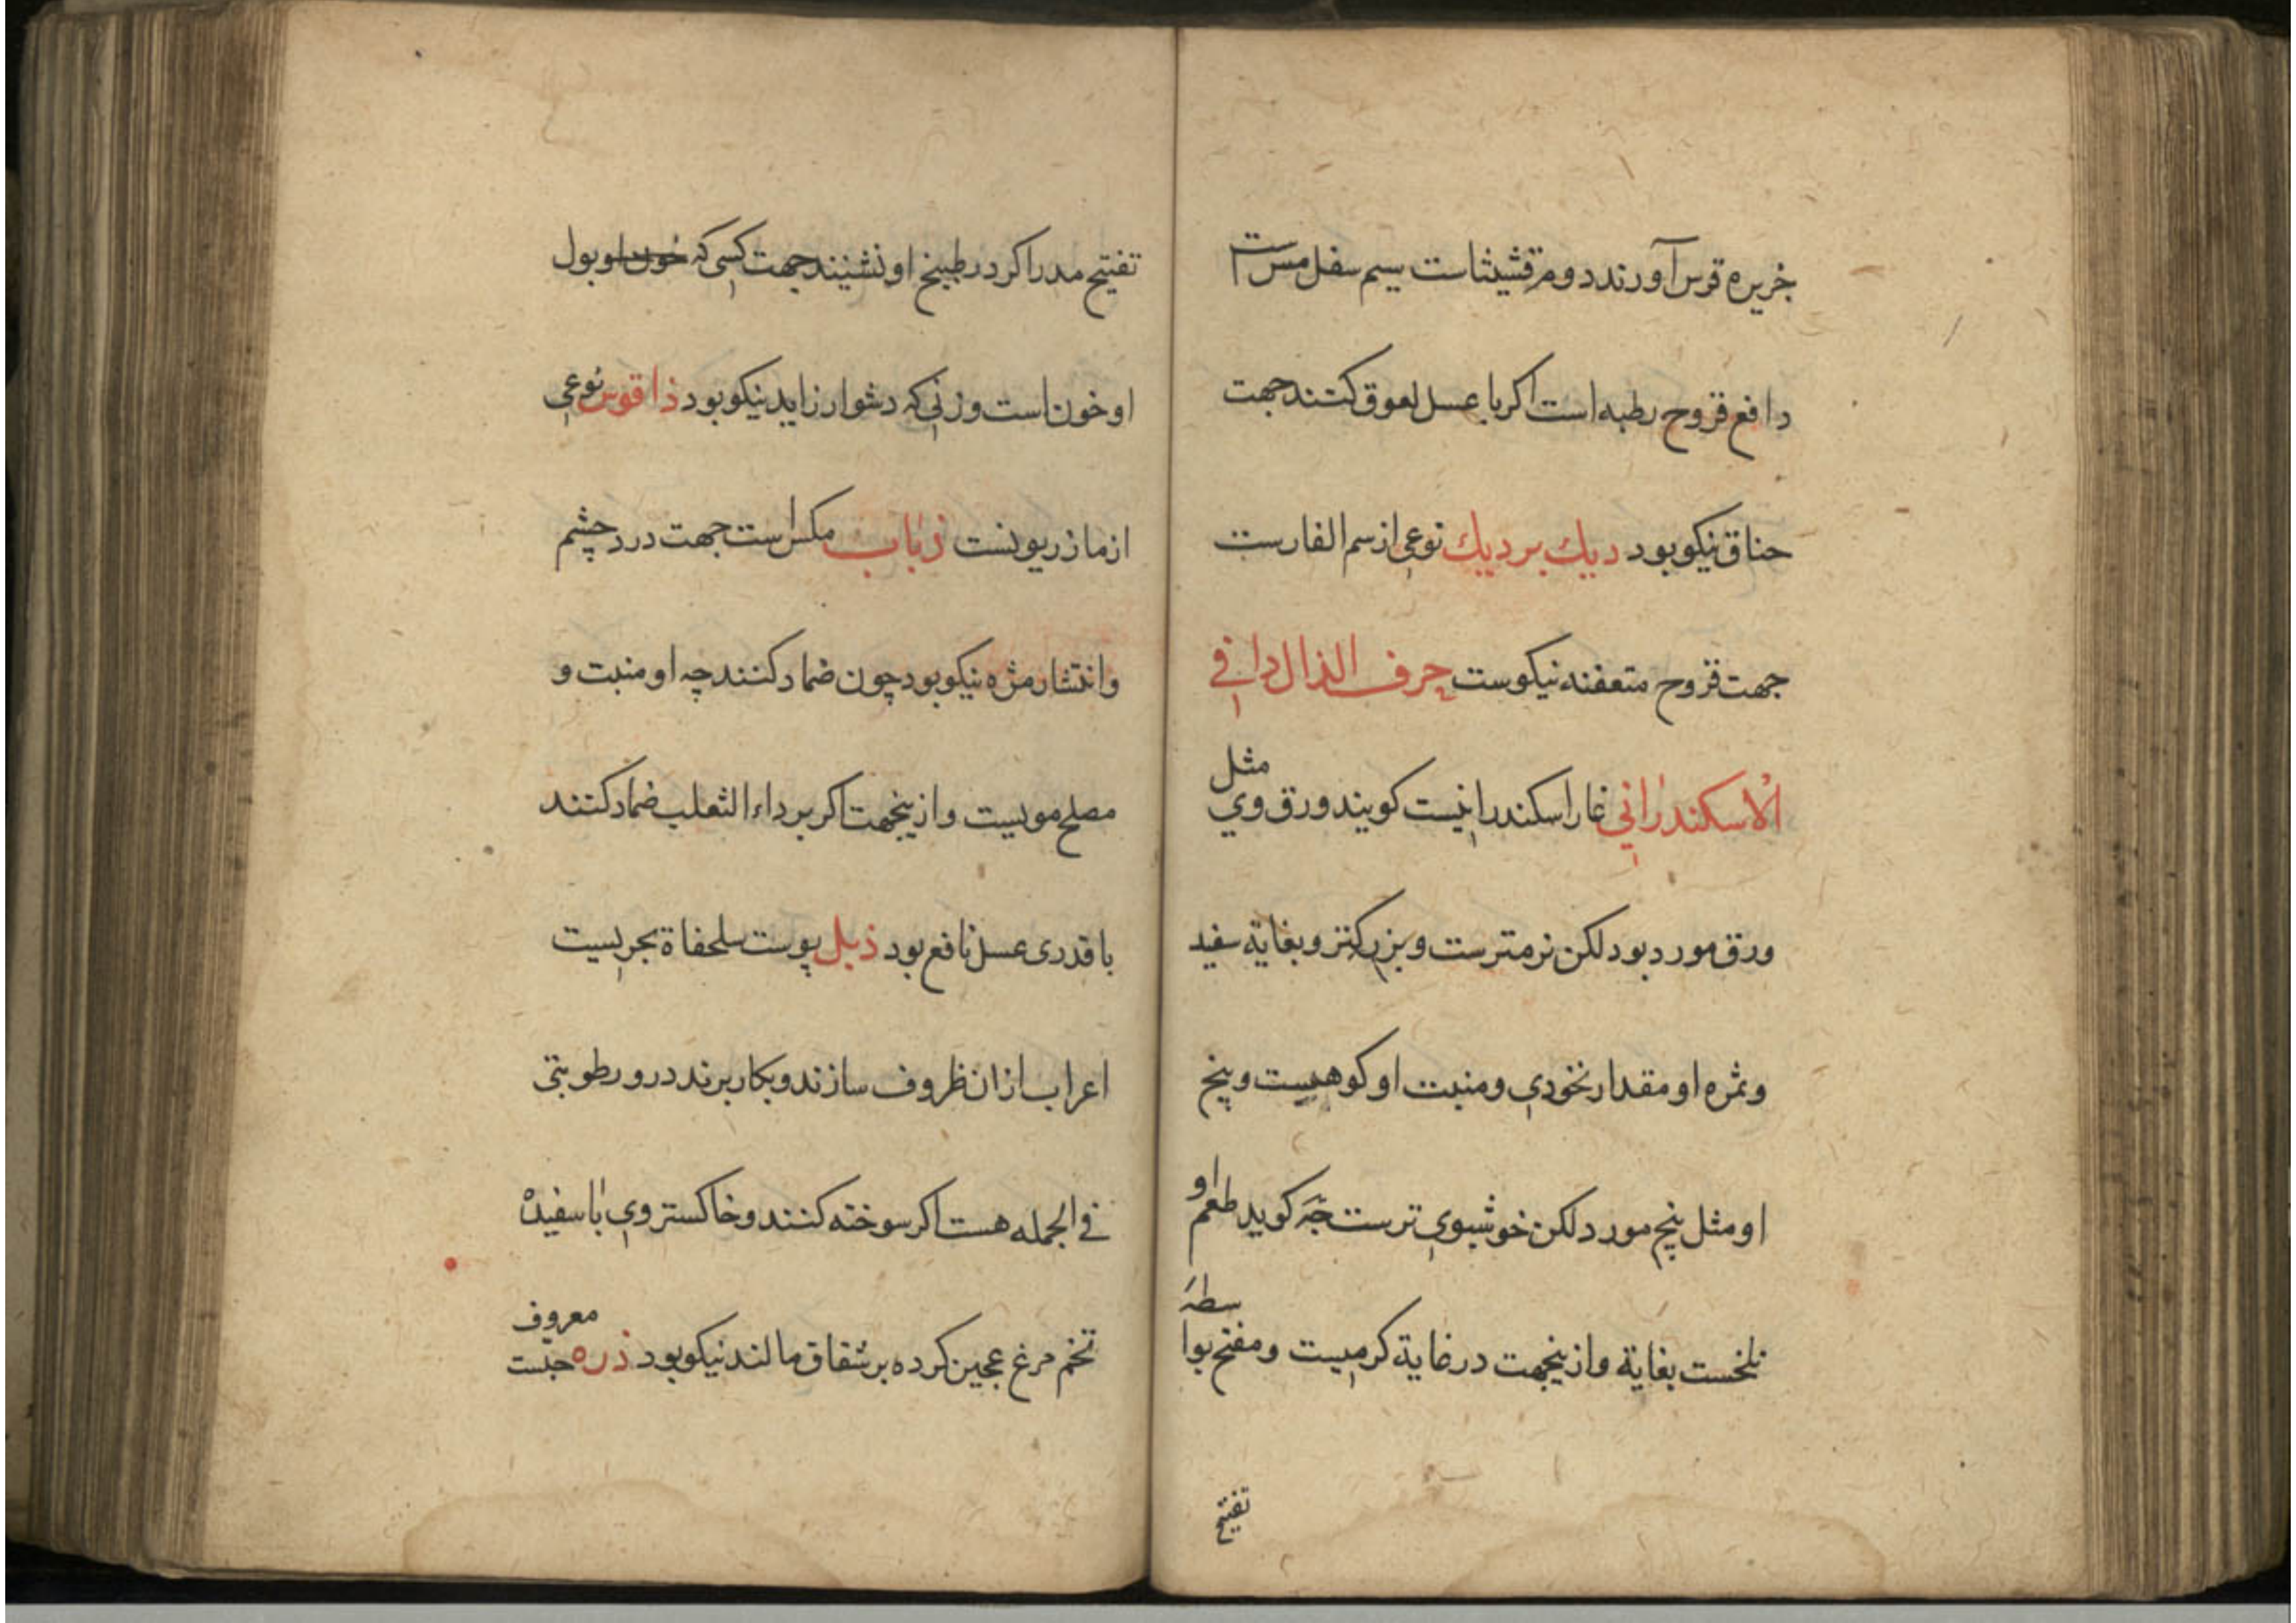 جزیره قرس آورند دوم قشیثاست سیم سفل مس است
دافع قروح رطبه است اکر با عسل لعوق کنند جهت
خناق نیکو بود دیك بر دیك نوعی از سم الفارست
جهت قروح متعفنه نیکوست حرف الذال دافی
الاسکندرانی غار اسکندرانیست کویند ورق وی مثل
ورق مورد بود لکن نرمترست و بزرکتر و بغایة سفید
و ثمره او مقدار نخودی و منبت او کوهیست و بیخ
او مثل بیخ مورد لکن خوشبوی ترست چه کوید طعم او
تلخست بغایة و ازینجهت در غایة کرمیست و مفتح بواسطه
تفتیح
تفتیح مدر اکر در طبیخ او نشینند جهت کسی که خون او بول
او خون است و زنی که دشوار زاید نیکو بود ذاقوس نوعی
از مازریونست ذباب مکس است جهت درد چشم
و انتشار مژه نیکو بود چون ضماد کنند چه او منبت و
مصلح مویست و ازینجهت اکر بر داء الثعلب ضماد کنند
با قدری عسل نافع بود ذبل پوست سلحفاة بحریست
اعراب ازان ظروف سازند و بکار برند درو رطوبتی
فی الجمله هست اکر سوخته کنند و خاکستر وی با سفیده
تخم مرغ عجین کرده بر شقاق مالند نیکو بود ذره حبّست معروف